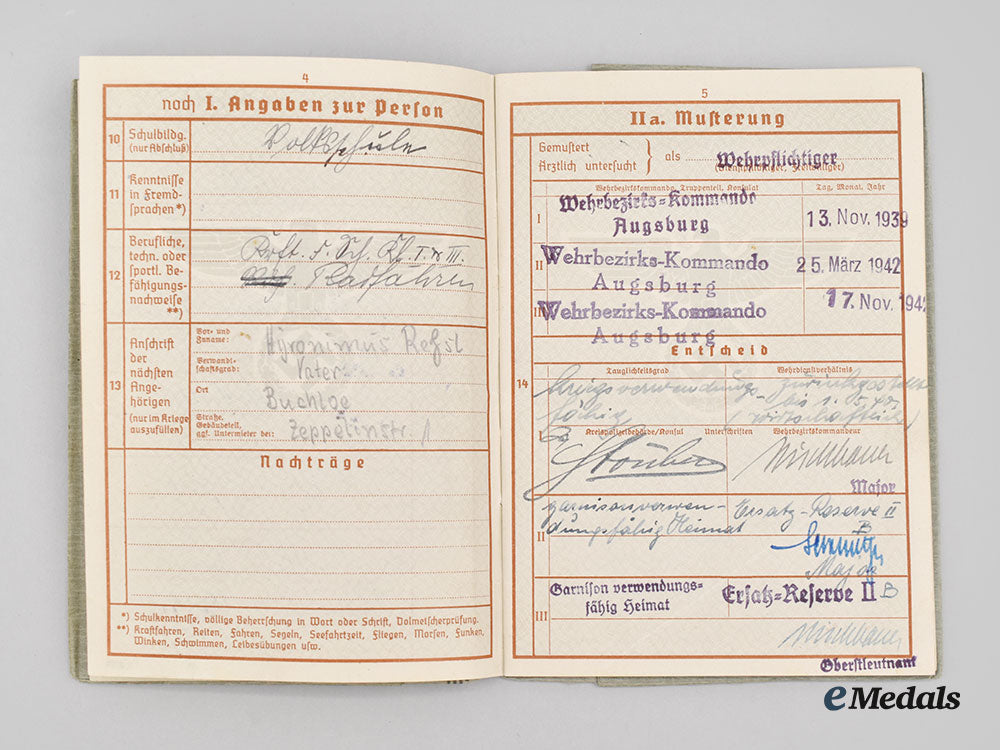 4
noch I. Angaben zur Person
10 Schulbildg. (nur Abschluß)
Volksschule
11 Kenntnisse in Fremdsprachen*)
12 Berufliche, techn. oder sportl. Befähigungsnachweise **)
Kl. I & III.
Radfahren
13 Anschrift der nächsten Angehörigen (nur im Kriege auszufüllen)
Vor- und Zuname:
Verwandtschaftsgrad: Vater
Ort Buchloe
Straße, Gebäudeteil, ggf. Untermieter bei: Zeppelinstr.
Nachträge
*) Schulkenntnisse, völlige Beherrschung in Wort oder Schrift, Dolmetscherprüfung.
**) Kraftfahren, Reiten, Fahren, Segeln, Seefahrtzeit, Fliegen, Morsen, Funken,
Winken, Schwimmen, Leibesübungen usw.
5
IIa. Musterung
Gemustert
Ärztlich untersucht } als Wehrpflichtiger
(Dienstpflichtiger, Freiwilliger)
Wehrbezirkskommando, Truppenteil, Konsulat
Tag, Monat, Jahr
I Wehrbezirks-Kommando
Augsburg
13. Nov. 1939
II Wehrbezirks-Kommando
Augsburg
25. März 1942
III Wehrbezirks-Kommando
Augsburg
17. Nov. 1942
Entscheid
14
Tauglichkeitsgrad
Wehrdienstverhältnis
kriegsverwendungs-
fähig
zurückgestellt
bis
Kreispolizeibehörde/Konsul
Unterschriften
Wehrbezirkskommandeur
Major
II garnisonverwen-
dungsfähig Heimat
Ersatz-Reserve II
B
Major
III Garnison verwendungs-
fähig Heimat
Ersatz-Reserve II B
Oberstleutnant
eMedals